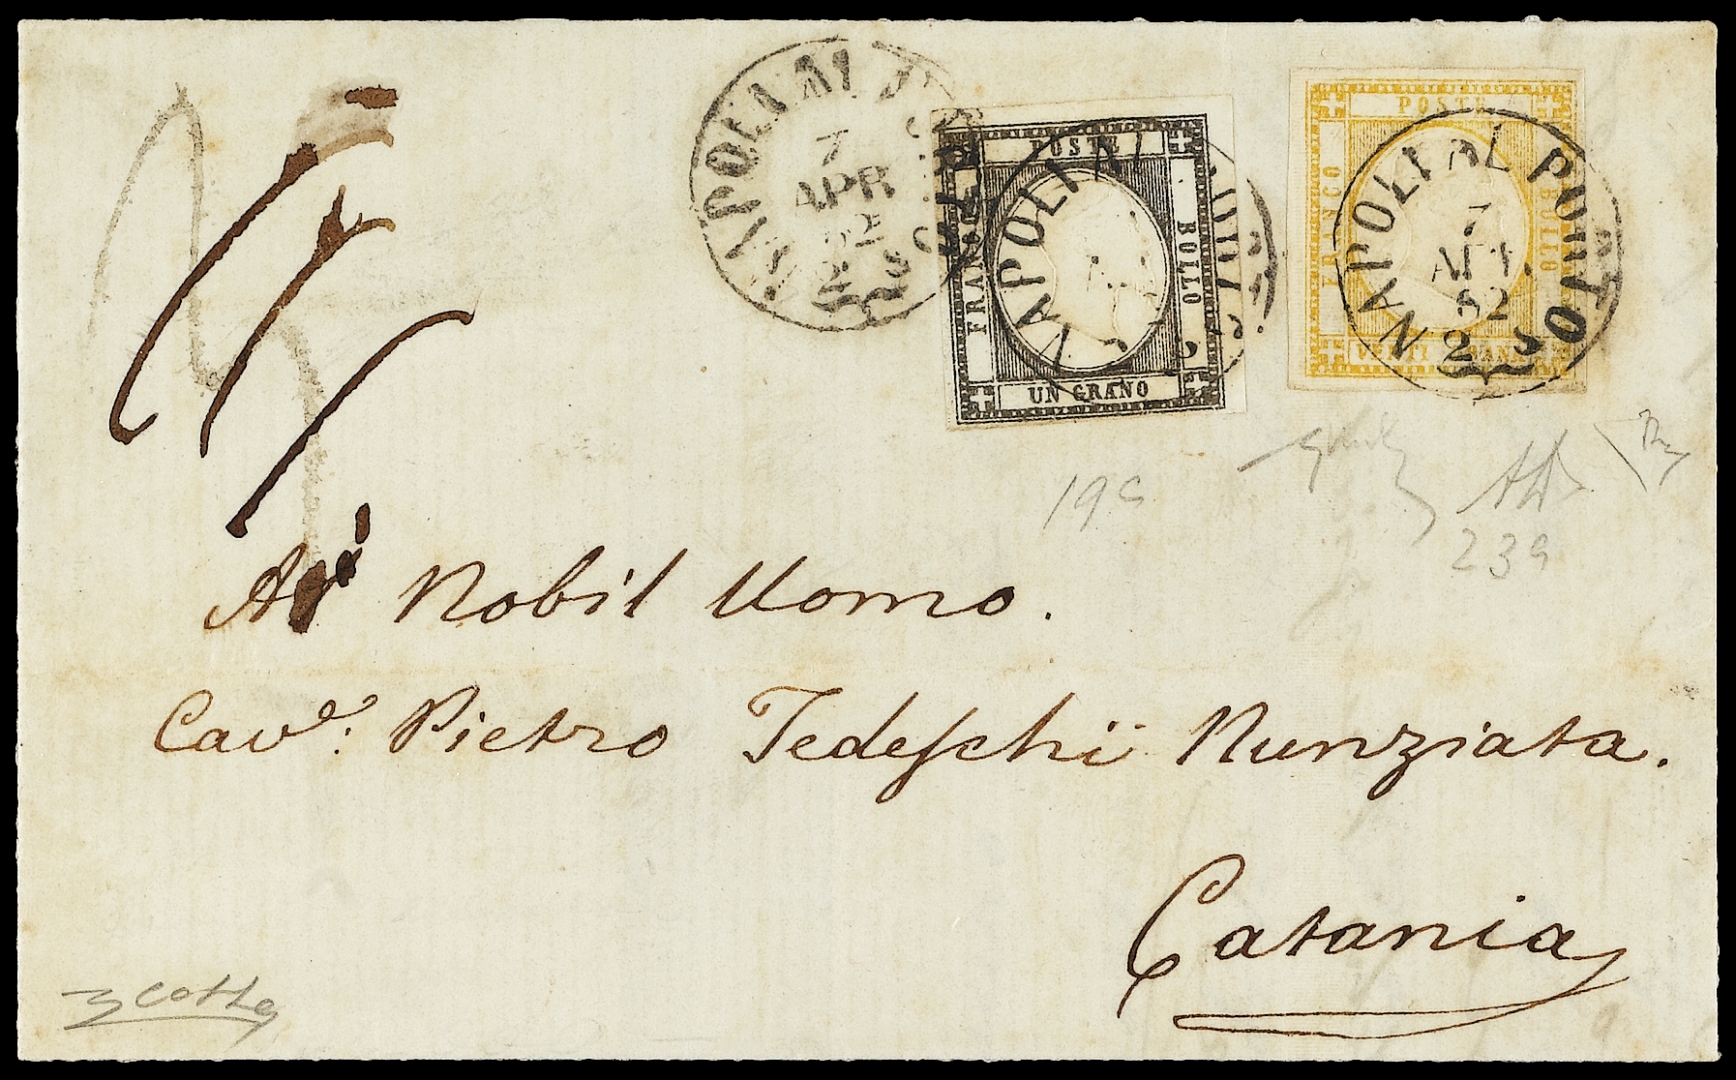 NAPOLI AL PORTO
7
APR
62
2 S
POSTE
FRANCO
BOLLO
UN GRANO
NAPOLI AL PORTO
POSTE
FRANCO
BOLLO
VENTI GRANA
NAPOLI AL PORTO
7
APR
62
2 S
19c
239
Al Nobil Uomo.
Cav.e: Pietro Tedeschi Nunziata.
Catania